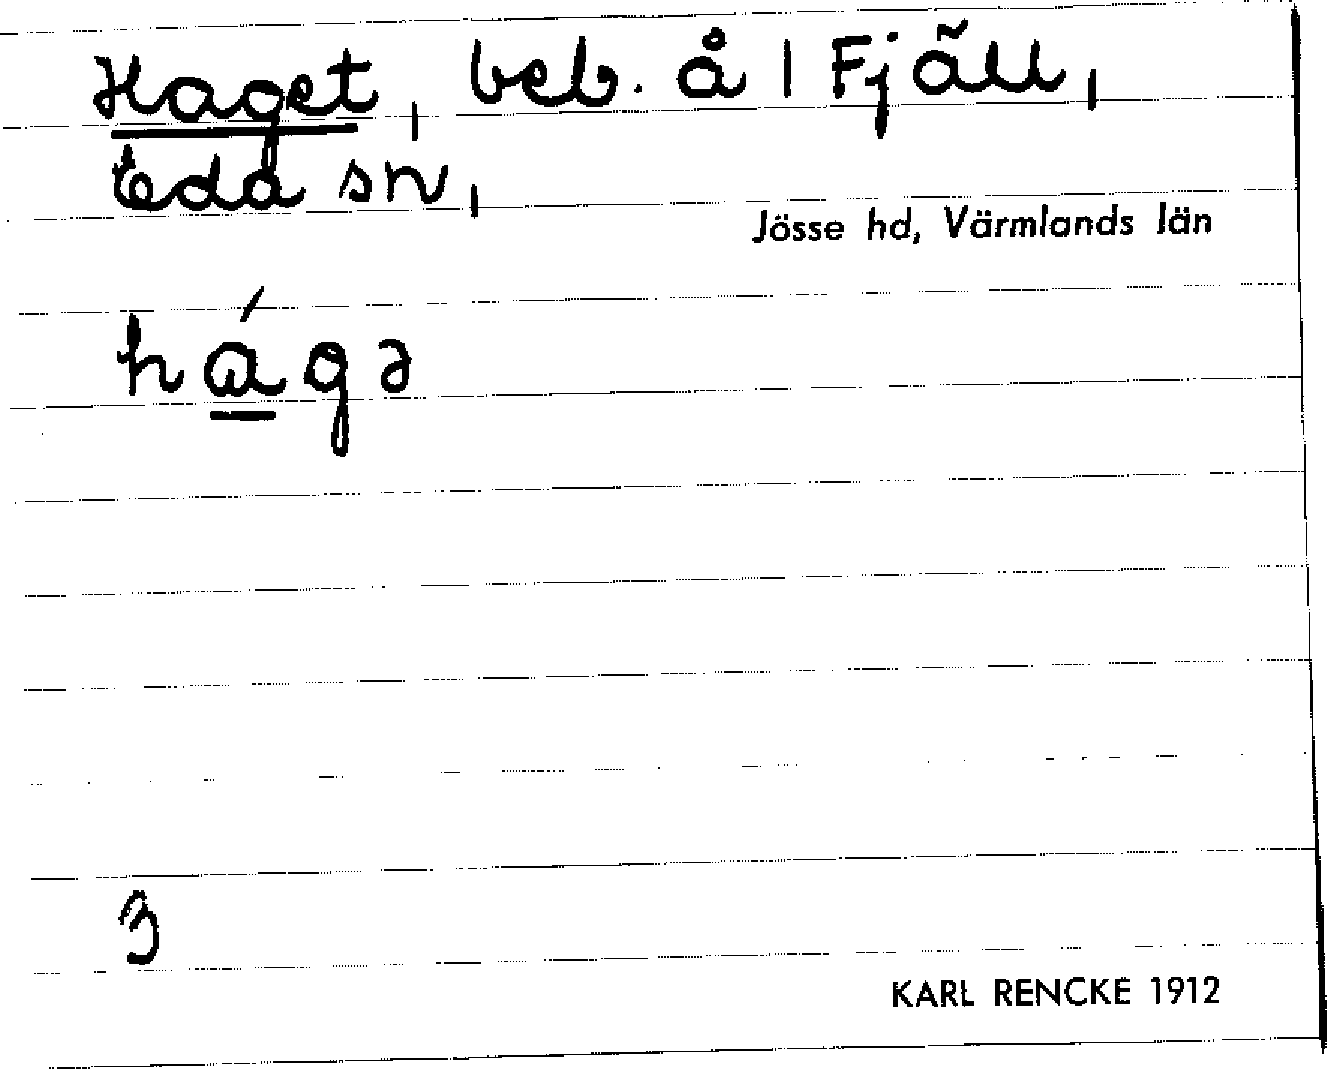 Haget, beb. å 1 Fjäll,
Eda sn,
Jösse hd, Värmlands län
hágə
3
KARL RENCKE 1912